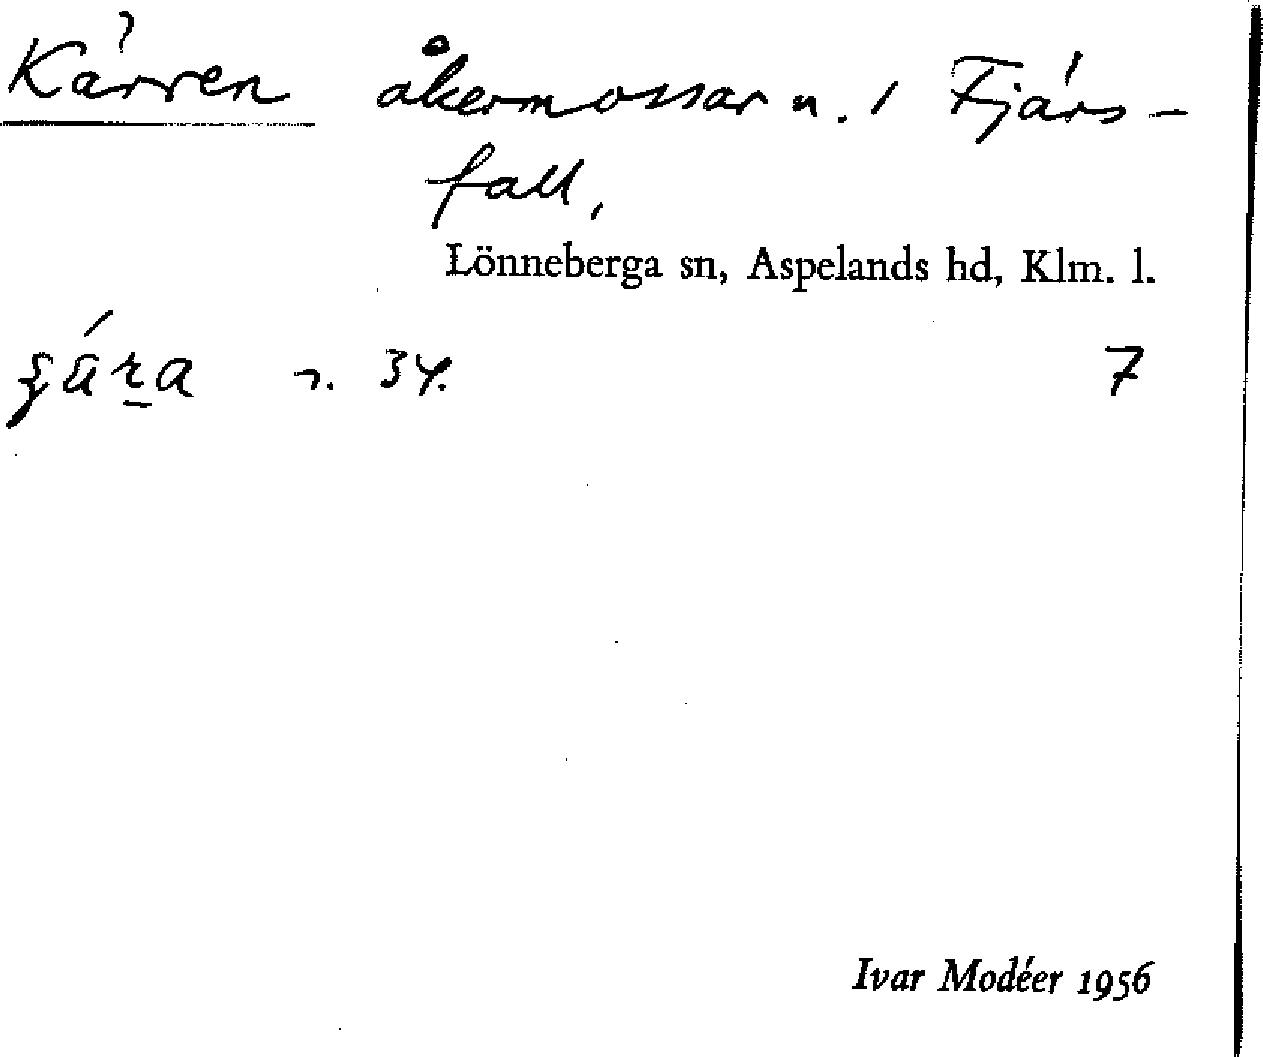 Kärren åkermossar n. i Fjärs-
fall,
Lönneberga sn, Aspelands hd, Klm. l.
n. 34. 7
Ivar Modéer 1956